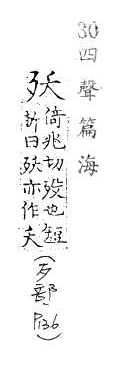 30四聲篇海
殀
倚兆切殁也短
折曰殀亦作夭
(歹部,P136)